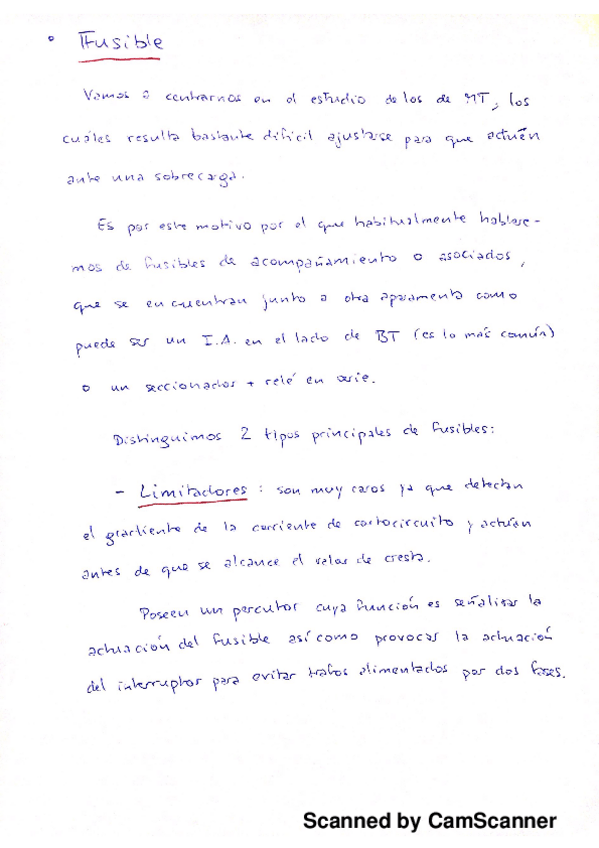 ° Fusible
Vamos a centrarnos en el estudio de los de MT, los
cuáles resulta bastante difícil ajustarse para que actúen
ante una sobrecarga.
Es por este motivo por el que habitualmente hablare-
mos de fusibles de acompañamiento o asociados,
que se encuentran junto a otra aparamenta como
puede ser un I.A. en el lado de BT (es lo más común)
o un seccionador + relé en serie.
Distinguimos 2 tipos principales de fusibles:
- Limitadores : son muy caros ya que detectan
el gradiente de la corriente de cortocircuito y actúan
antes de que se alcance el valor de cresta.
Poseen un percutor cuya función es señalizar la
actuación del fusible así como provocar la actuación
del interruptor para evitar trafos alimentados por dos fases.
Scanned by CamScanner